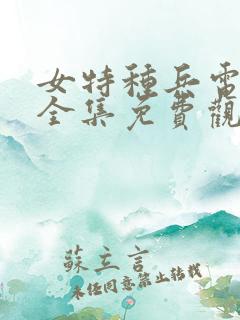 女特種兵電
全集免費觀
蘇立言
未經同意禁止轉載